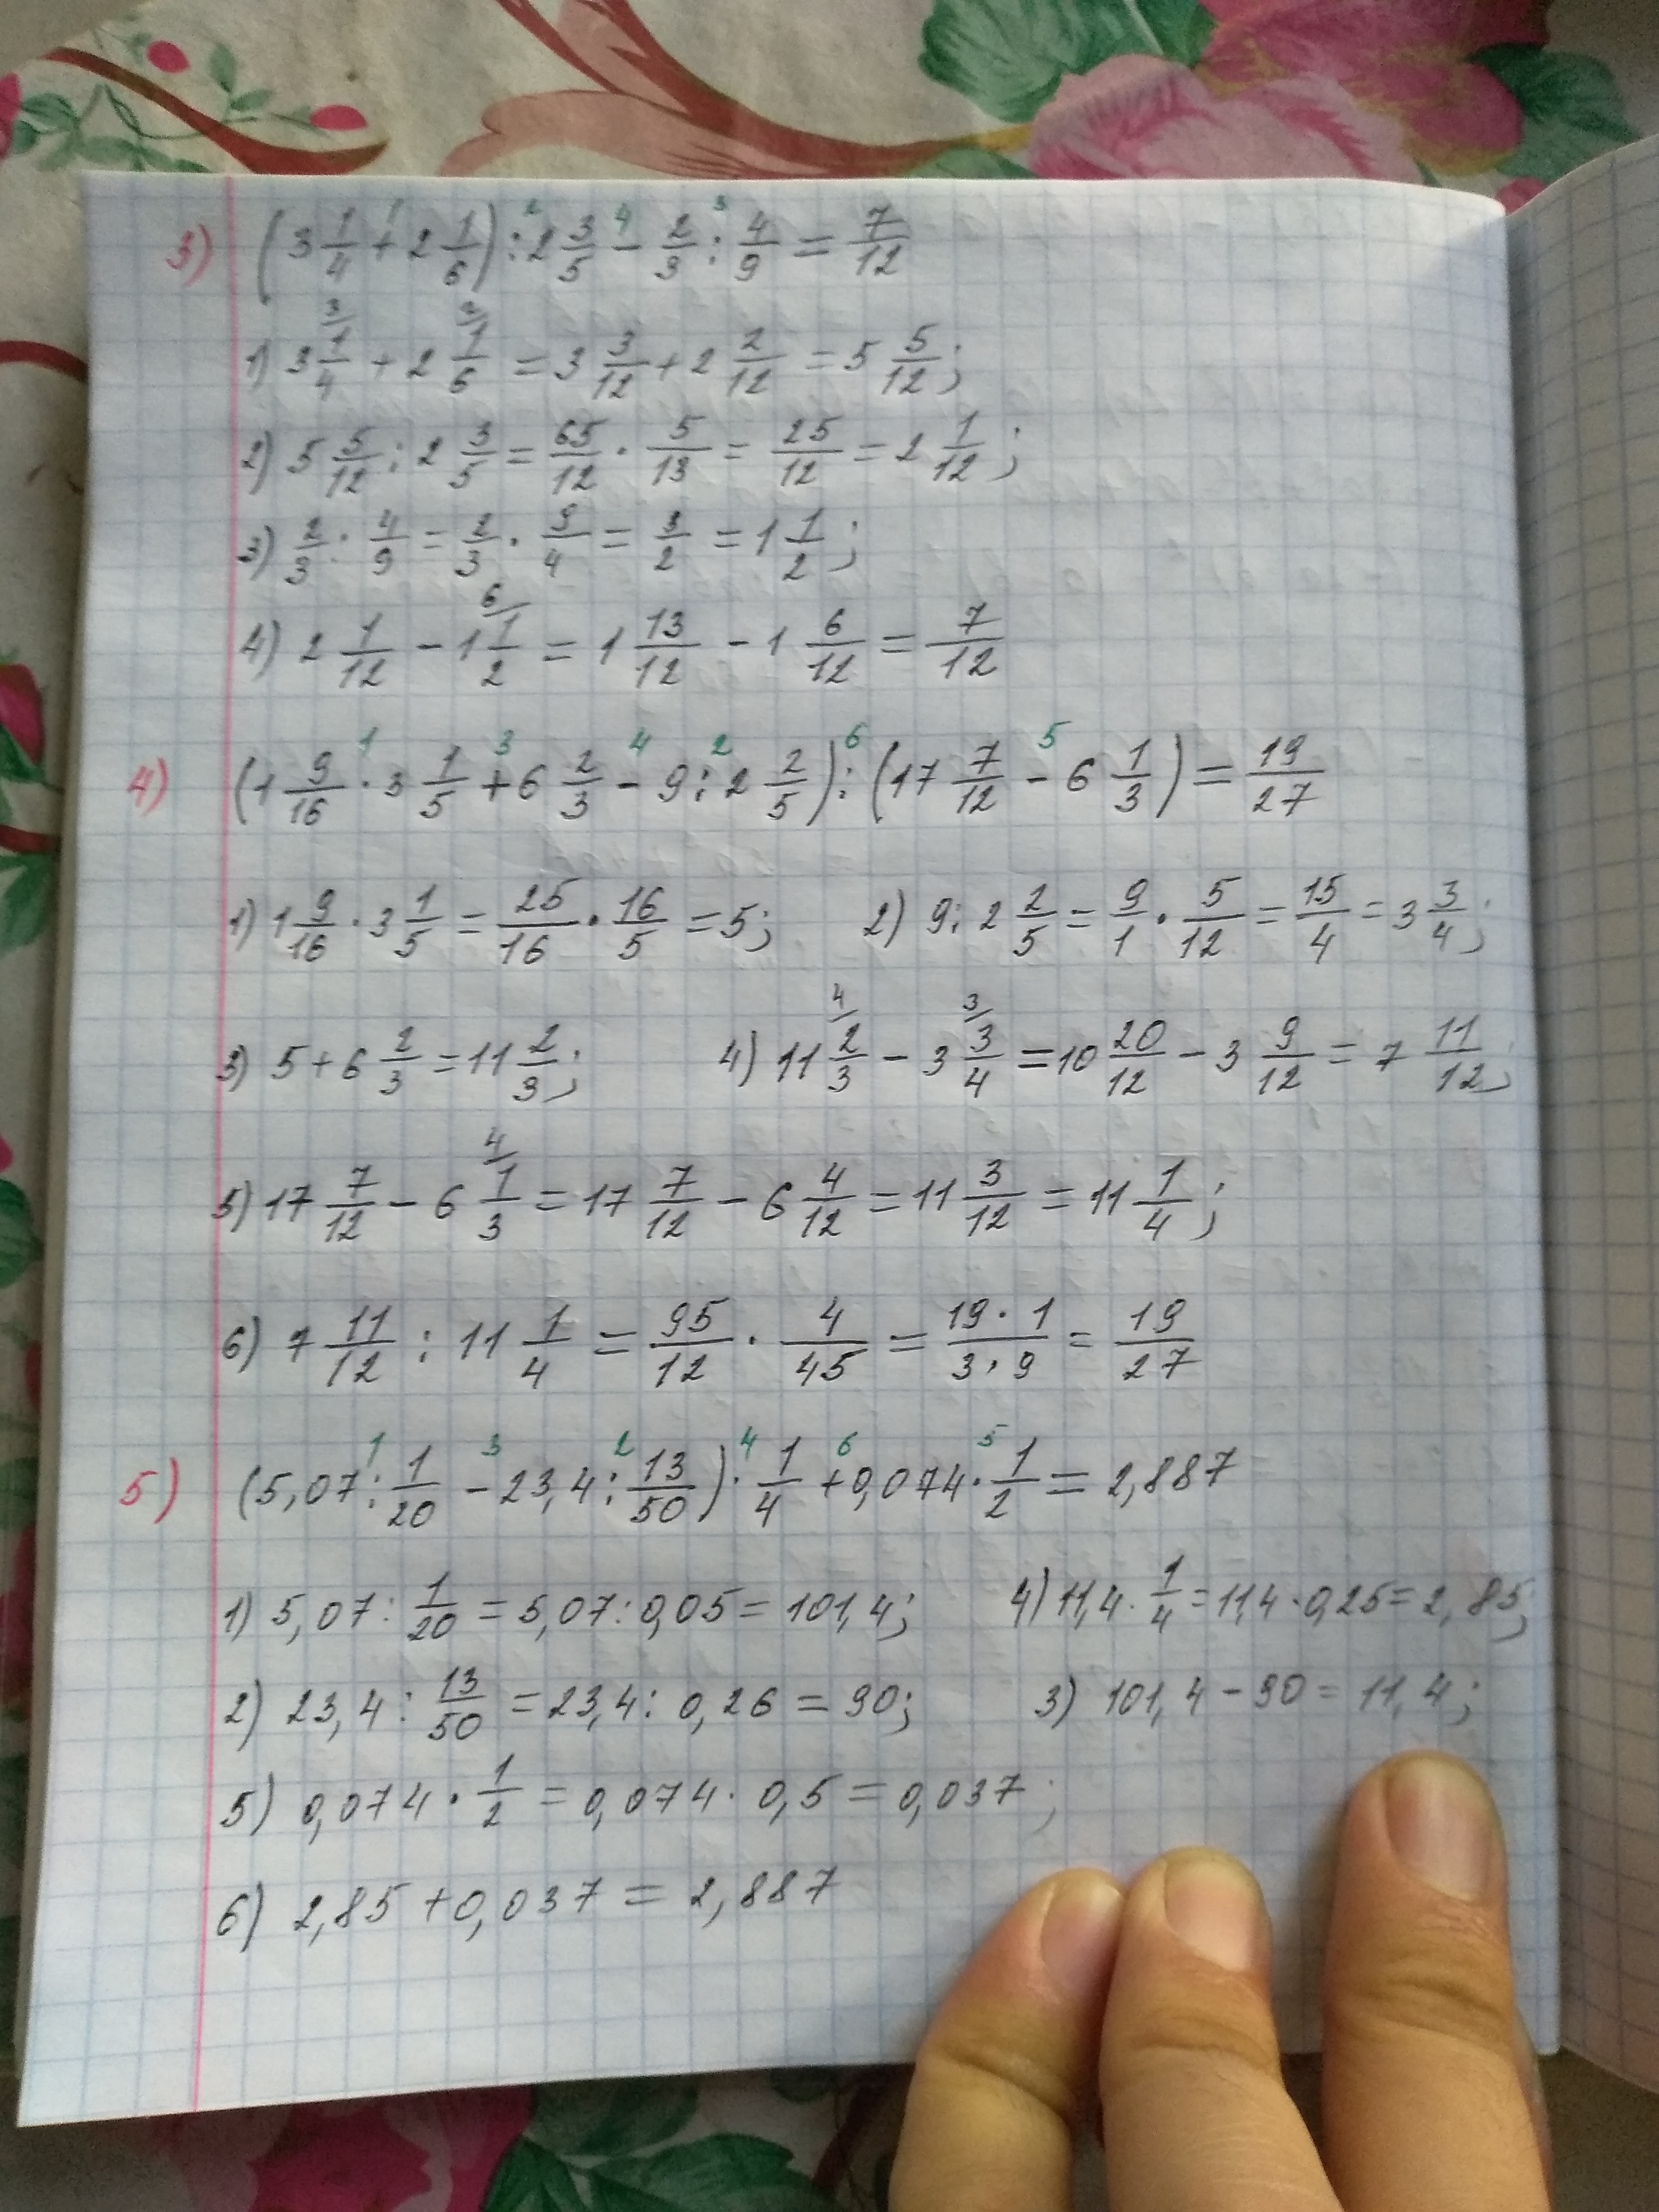 3) (3 1/4 + 2 1/6) : 2 3/5 - 2/3 : 4/9 = 7/12
1) 3 1/4 + 2 1/6 = 3 3/12 + 2 2/12 = 5 5/12;
2) 5 5/12 : 2 3/5 = 65/12 · 5/13 = 25/12 = 2 1/12;
3) 2/3 : 4/9 = 2/3 · 9/4 = 3/2 = 1 1/2;
4) 2 1/12 - 1 1/2 = 1 13/12 - 1 6/12 = 7/12
4) (1 9/16 · 3 1/5 + 6 2/3 - 9 : 2 2/5) : (17 7/12 - 6 1/3) = 19/27
1) 1 9/16 · 3 1/5 = 25/16 · 16/5 = 5; 2) 9 : 2 2/5 = 9/1 · 5/12 = 15/4 = 3 3/4;
3) 5 + 6 2/3 = 11 2/3; 4) 11 2/3 - 3 3/4 = 10 20/12 - 3 9/12 = 7 11/12;
5) 17 7/12 - 6 1/3 = 17 7/12 - 6 4/12 = 11 3/12 = 11 1/4;
6) 7 11/12 : 11 1/4 = 95/12 · 4/45 = 19·1/3·9 = 19/27
5) (5,07 : 1/20 - 23,4 : 13/50) · 1/4 + 0,074 · 1/2 = 2,887
1) 5,07 : 1/20 = 5,07 : 0,05 = 101,4; 4) 11,4 · 1/4 = 11,4 · 0,25 = 2,85;
2) 23,4 : 13/50 = 23,4 : 0,26 = 90; 3) 101,4 - 90 = 11,4;
5) 0,074 · 1/2 = 0,074 · 0,5 = 0,037;
6) 2,85 + 0,037 = 2,887